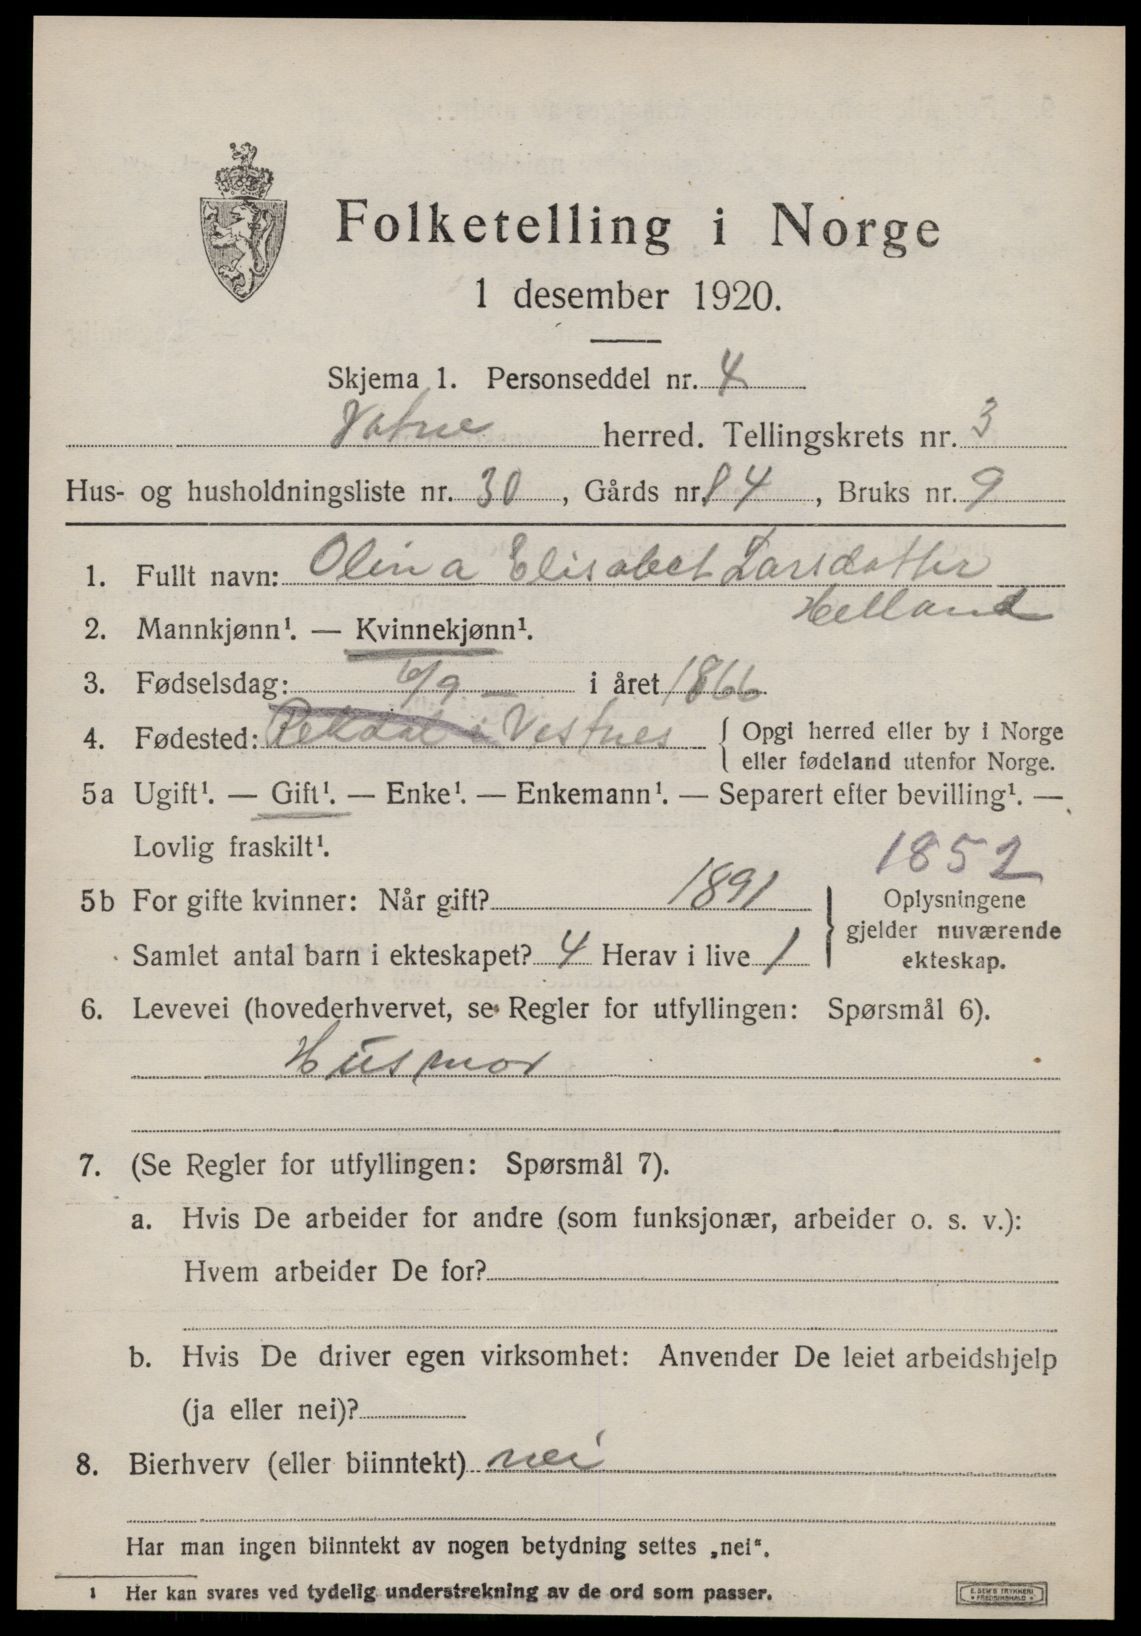 Folketelling i Norge
1 desember 1920.
Skjema 1. Personseddel nr. 4
Vatne herred. Tellingskrets nr. 3
Hus- og husholdningsliste nr. 30, Gårds nr. 84, Bruks nr. 9
1. Fullt navn: Olina Elisabet Larsdatter
Helland
2. Mannkjønn¹. — Kvinnekjønn¹.
3. Fødselsdag: 6/9 - i året 1866
4. Fødested: Rekdal i Vestnes { Opgi herred eller by i Norge
eller fødeland utenfor Norge.
5a Ugift¹. — Gift¹. — Enke¹. — Enkemann¹. — Separert efter bevilling¹. —
Lovlig fraskilt¹.
1852
5b For gifte kvinner: Når gift? 1891 } Oplysningene
gjelder nuværende
Samlet antal barn i ekteskapet? 4 Herav i live 1 ekteskap.
6. Levevei (hovederhvervet, se Regler for utfyllingen: Spørsmål 6).
Husmor
7. (Se Regler for utfyllingen: Spørsmål 7).
a. Hvis De arbeider for andre (som funksjonær, arbeider o. s. v.):
Hvem arbeider De for?
b. Hvis De driver egen virksomhet: Anvender De leiet arbeidshjelp
(ja eller nei)?
8. Bierhverv (eller biinntekt) nei
Har man ingen biinntekt av nogen betydning settes „nei“.
1 Her kan svares ved tydelig understrekning av de ord som passer.
E. SEM'S TRYKKERI
FREDRIKSHALD